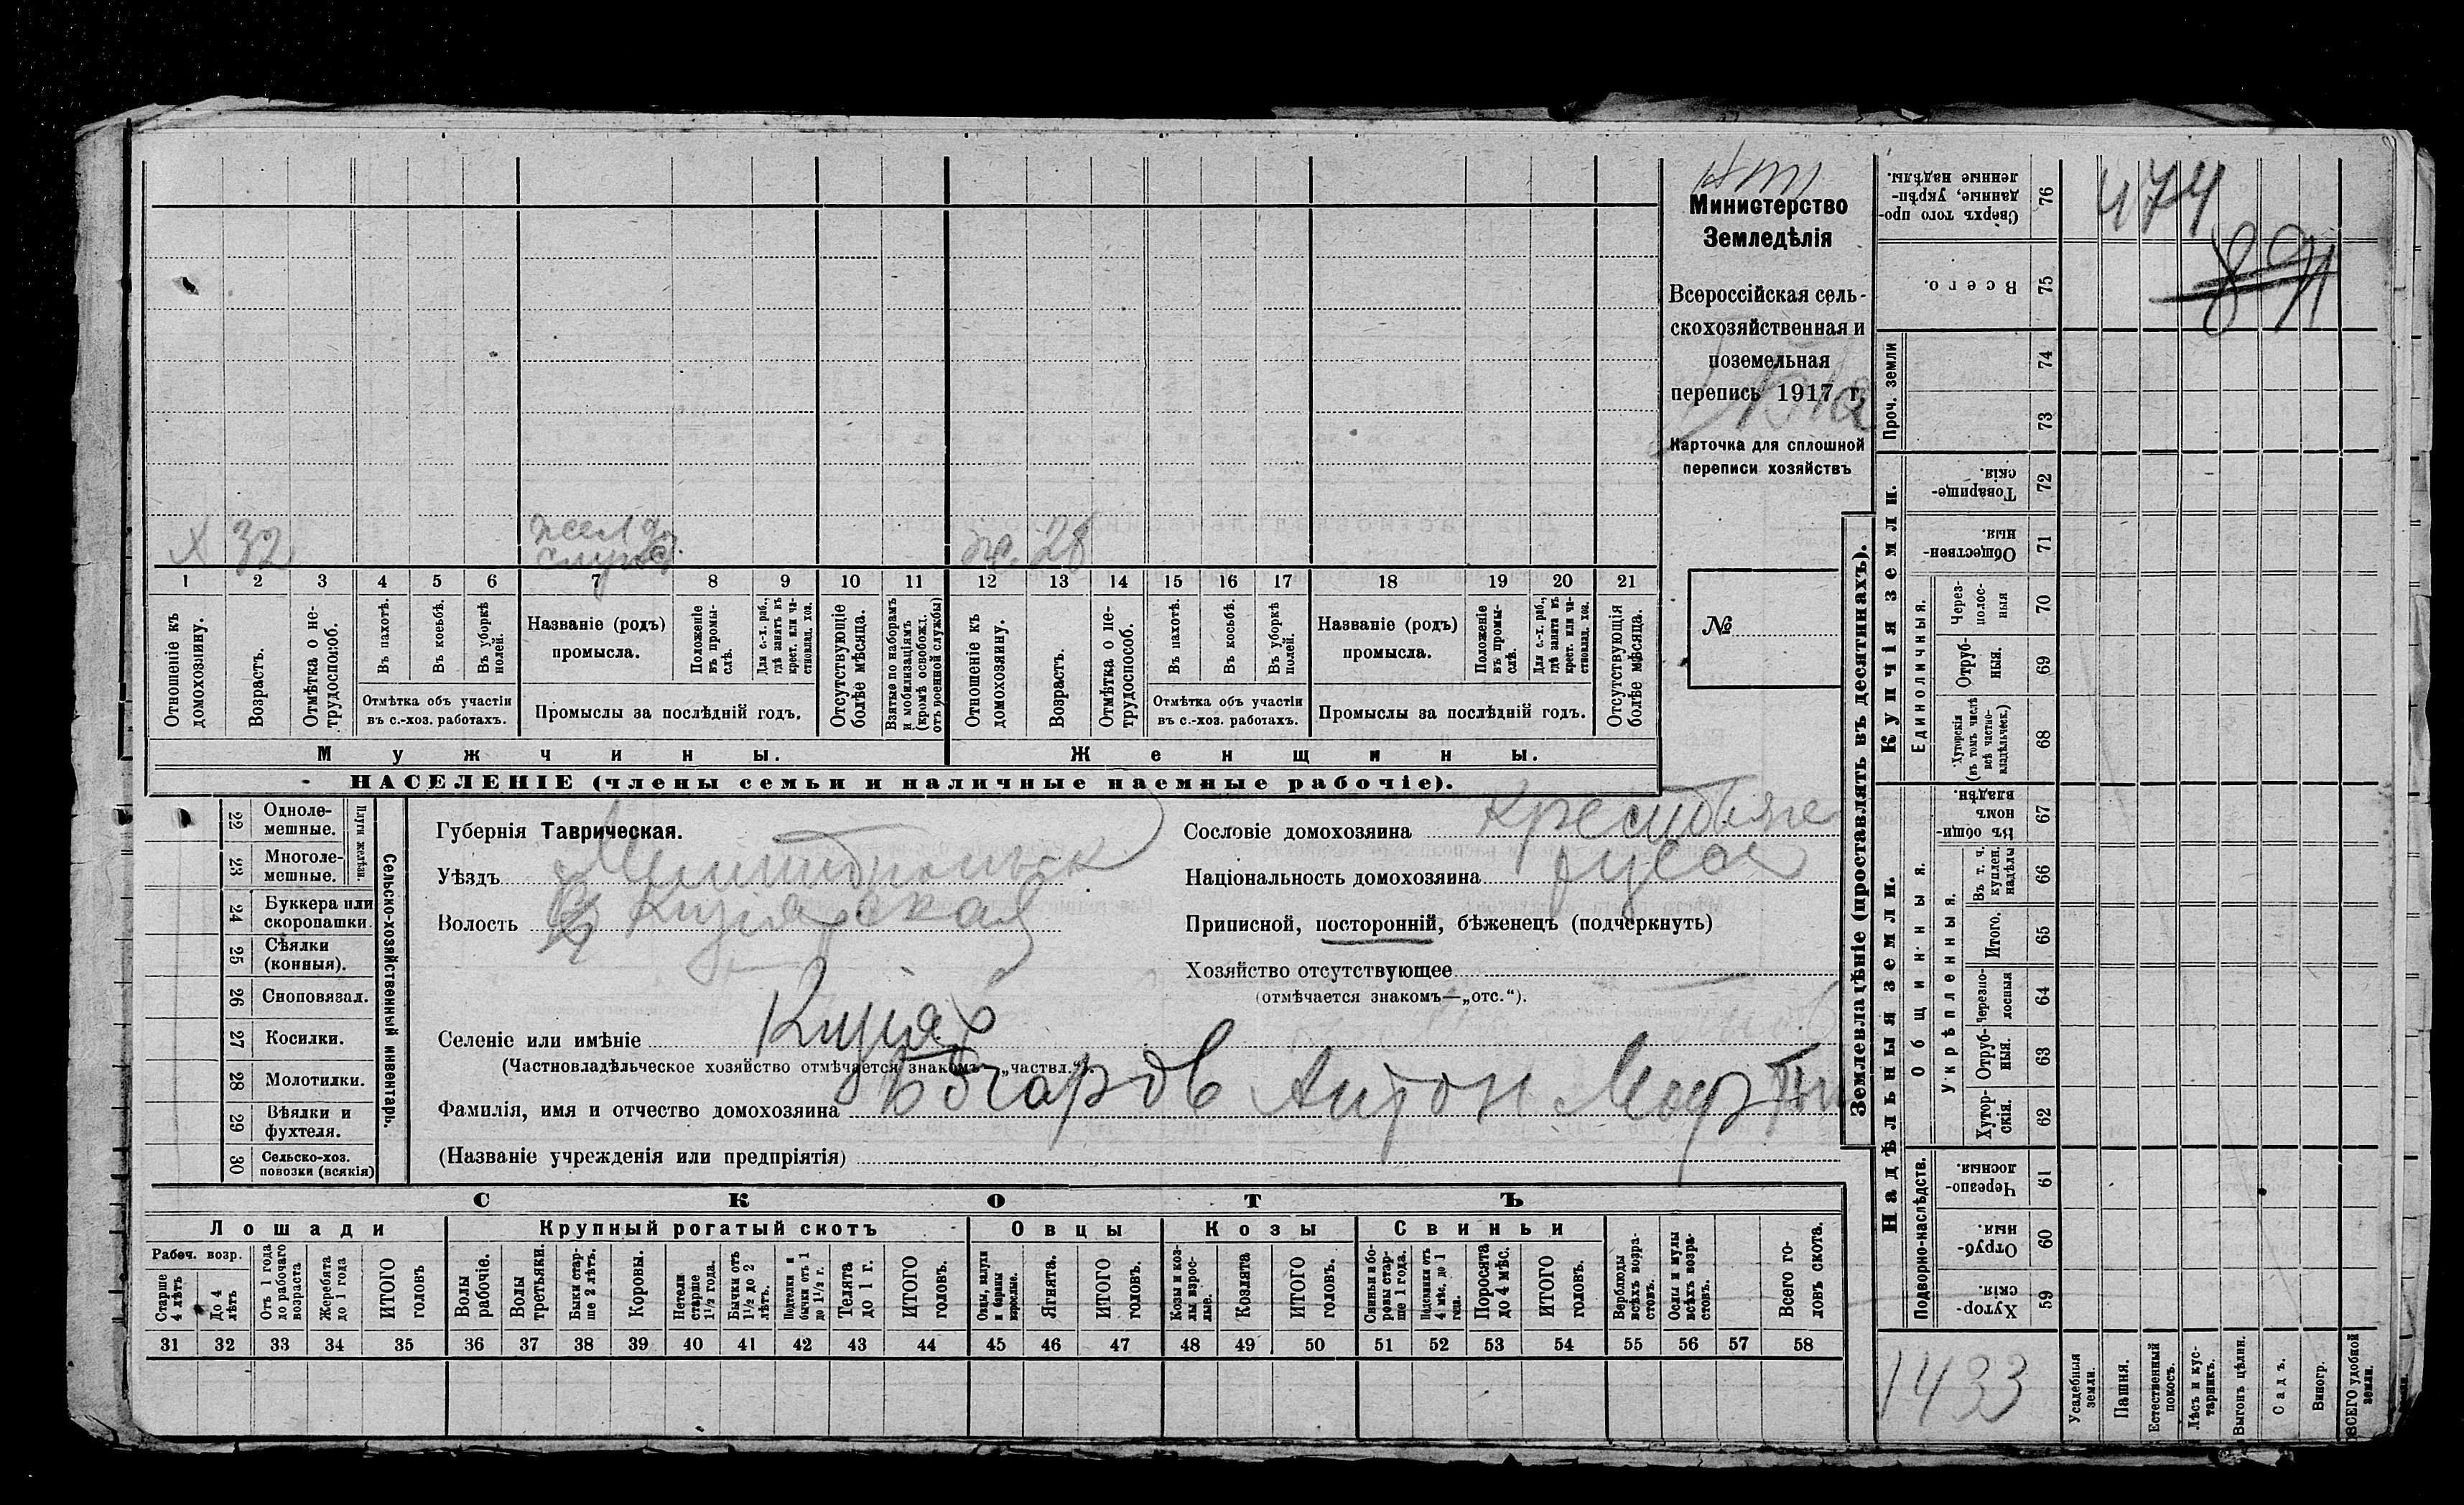 Министерство
Земледѣлія
Всероссійская сель-
скохозяйственная и
поземельная
перепись 1917 г.
Карточка для сплошной
переписи хозяйствъ
№
Х 32
служ.
ж. 28
1 2 3 4 5 6 7 8 9 10 11 12 13 14 15 16 17 18 19 20 21
Отношеніе къ домохозяину.
Возрастъ.
Отмѣтка о не-трудоспособ.
Въ пахотѣ.
Въ косьбѣ.
Въ уборкѣ полей.
Отмѣтка объ участіи
въ с.-хоз. работахъ.
Названіе (родъ)
промысла.
Положеніе въ промы-слѣ.
Для с.-х. раб., гдѣ занятъ въ крест. или ча-стновлад. хоз.
Промыслы за послѣдній годъ.
Отсутствующіе болѣе мѣсяца.
Взятые по наборамъ и мобилизаціямъ (кромѣ освобожд. отъ военной службы)
Отношеніе къ домохозяину.
Возрастъ.
Отмѣтка о не-трудоспособ.
Въ пахотѣ.
Въ косьбѣ.
Въ уборкѣ полей.
Отмѣтка объ участіи
въ с.-хоз. работахъ.
Названіе (родъ)
промысла.
Положеніе въ промы-слѣ.
Для с.-х. раб., гдѣ занята въ крест. или ча-стновлад. хоз.
Промыслы за послѣдній годъ.
Отсутствующія болѣе мѣсяца.
Мужчины.
Женщины.
НАСЕЛЕНІЕ (члены семьи и наличные наемные рабочіе).
22 Одноле-мешные.
23 Многоле-мешные.
Плуги желѣзн.
24 Буккера или скоропашки
25 Сѣялки (конныя).
26 Сноповязал.
27 Косилки.
28 Молотилки.
29 Вѣялки и фухтеля.
30 Сельско-хоз. повозки (всякія)
Сельско-хозяйственный инвентарь.
Губернія Таврическая.
Уѣздъ Мелитопольск
Волость Кизіярская
Селеніе или имѣніе Кизіяр
(Частновладѣльческое хозяйство отмѣчается знакомъ „частвл.“)
Фамилія, имя и отчество домохозяина Бочаров Антон Март
(Названіе учрежденія или предпріятія)
Сословіе домохозяина крестьяне
Національность домохозяина русск
Приписной, посторонній, бѣженецъ (подчеркнуть)
Хозяйство отсутствующее
(отмѣчается знакомъ—„отс.“).
СКОТЪ
Лошади
Рабоч. возр.
Старше 4 лѣтъ
До 4 лѣтъ
Отъ 1 года до рабочаго возраста
Жеребята до 1 года
ИТОГО головъ
Крупный рогатый скотъ
Волы рабочіе.
Волы третьяки.
Быки стар-ше 2 лѣтъ.
Коровы.
Нетели старше 1½ года.
Бычки отъ 1½ до 2 лѣтъ.
Подтелки и бычки отъ 1 до 1½ г.
Телята до 1 г.
ИТОГО головъ.
Овцы
Овцы, валухи и бараны взрослые.
Ягнята.
ИТОГО головъ.
Козы
Козы и коз-лы взрос-лые.
Козлята
ИТОГО головъ.
Свиньи
Свиньи и бо-ровы стар-ше 1 года.
Подсвинки отъ 4 мѣс. до 1 года.
Поросята до 4 мѣс.
ИТОГО головъ.
Верблюды всѣхъ возра-стовъ.
Ослы и мулы всѣхъ возра-стовъ.
Всего го-ловъ скота.
31 32 33 34 35 36 37 38 39 40 41 42 43 44 45 46 47 48 49 50 51 52 53 54 55 56 57 58
Землевладѣніе (проставлять въ десятинахъ).
474
891
Сверхъ того про-данные, укрѣп-ленные надѣлы. 76
Всего. 75
Проч. земли
74
73
Купчія земли.
Товарище-скія. 72
Обществен-ныя. 71
Единоличныя.
Через-полос-ныя 70
Отруб-ныя. 69
Хуторскія (въ томъ числѣ всѣ частно-владѣльческ.) 68
Надѣльныя земли.
Общинныя.
Въ общи-номъ владѣн. 67
Укрѣпленныя.
Въ т. ч. куплен. надѣлы 66
Итого. 65
Черезпо-лосныя 64
Отруб-ныя. 63
Хутор-скія. 62
Подворно-наслѣдств.
Черезпо-лосныя. 61
Отруб-ныя. 60
Хутор-скія. 59
1433
Усадебныя земли.
Пашня.
Естественный покосъ.
Лѣсъ и кус-тарникъ.
Выгонъ цѣлин.
Садъ.
Виногр.
ВСЕГО удобной земли.